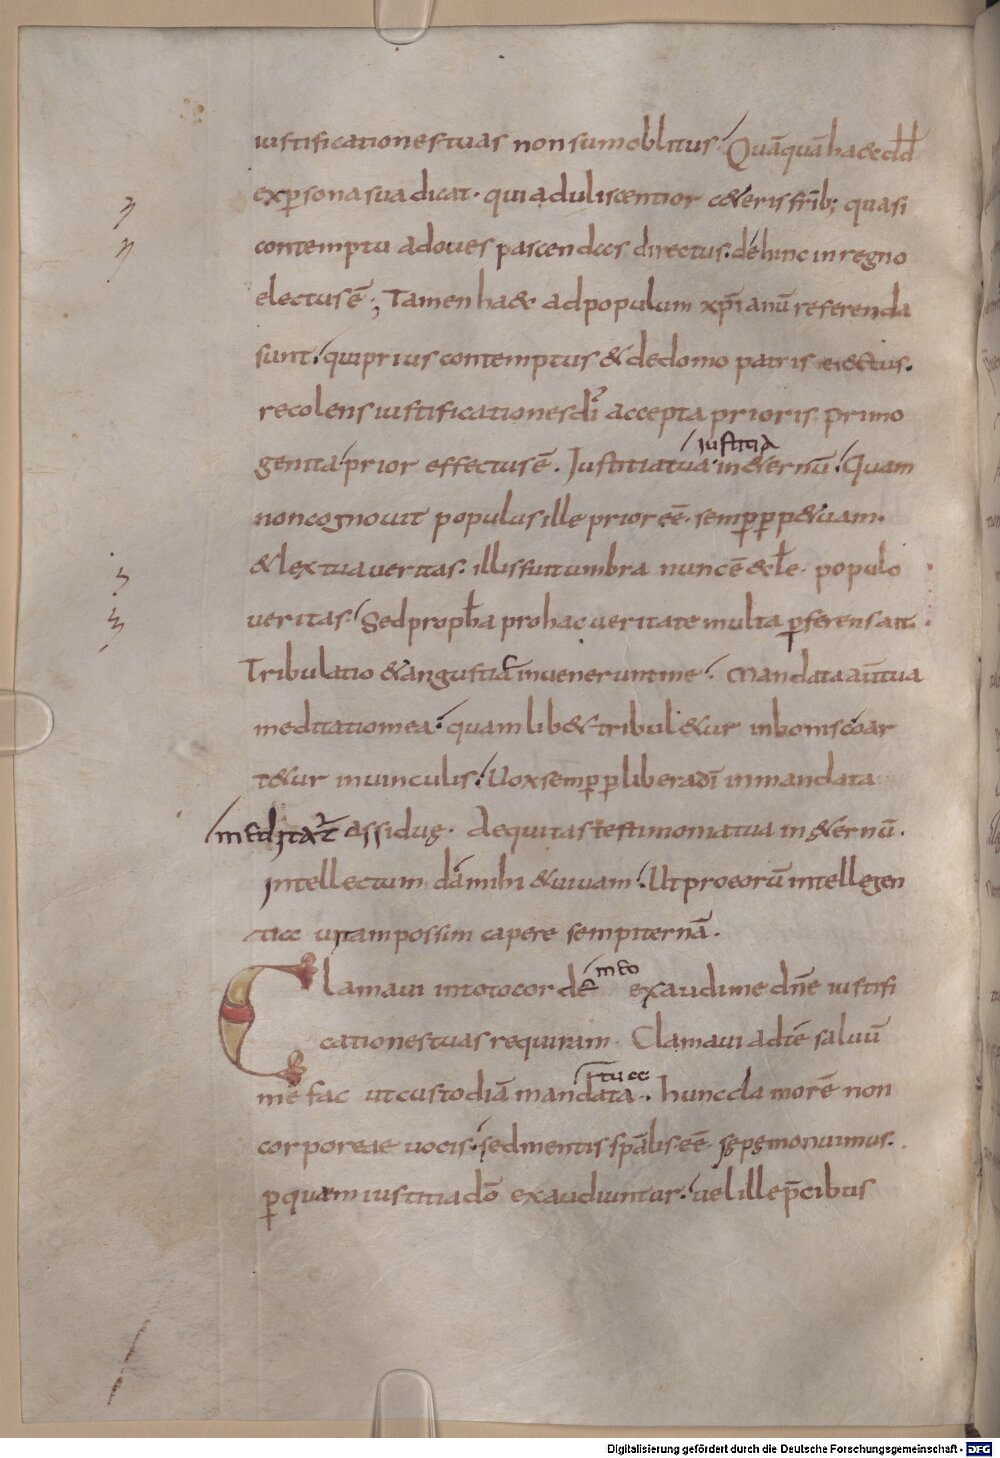 iustificationes tuas non sum oblitus. Quāquā ha& dd
ex psona sua dicat. qui aduliscentior c&eris frīb; quasi
contemptu ad oues pascendas directus. dehinc in regno
electus ē; Tamen ha& ad populum xp̄ianū referenda
sunt. qui prius contemptus & de domo patris eiectus.
recolens iustificationes dī accepta prioris primo
genita prior effectus ē. Iustitia tua iustitia in &ernū. Quam
non cognouit populus ille prior eē. semp pp&uam.
& lex tua ueritas. illis fuit umbra nunc ē &t̄le populo
ueritas. Sed proph̄a pro hac ueritate multa pferens ait.
Tribulatio & angustia inuenerunt me. Mandata aūt tua
meditatio mea. quam lib& tribul&ur in bonis coar
t&ur in uinculis. Uox semp p liberādī in mandata
meditat̄ assidue. Aequitas testimonia tua in &ernū.
Intellectum da mihi & uiuam. Ut pro eorū intellegen
tia uitam possim capere sempiternā.
Clamaui in toto corde meo exaudi me dn̄e iustifi
cationes tuas requiram. Clamaui ad tē saluū
me fac ut custodiā mandata tua. hunc clamorē non
corporeae uocis. sed mentis sp̄alis eē sepe monuimus.
p quam iustitia dō exaudiuntur. uel ille p̄cibus
Digitalisierung gefördert durch die Deutsche Forschungsgemeinschaft - DFG